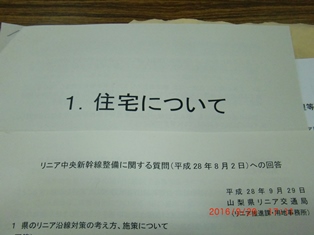 1. 住宅について
リニア中央新幹線整備に関する質問(平成28年8月2日)への回答
平成28年9月29日
山梨県リニア交通局
(リニア推進課・用地事務所)
1 県のリニア沿線対策の考え方、施策について